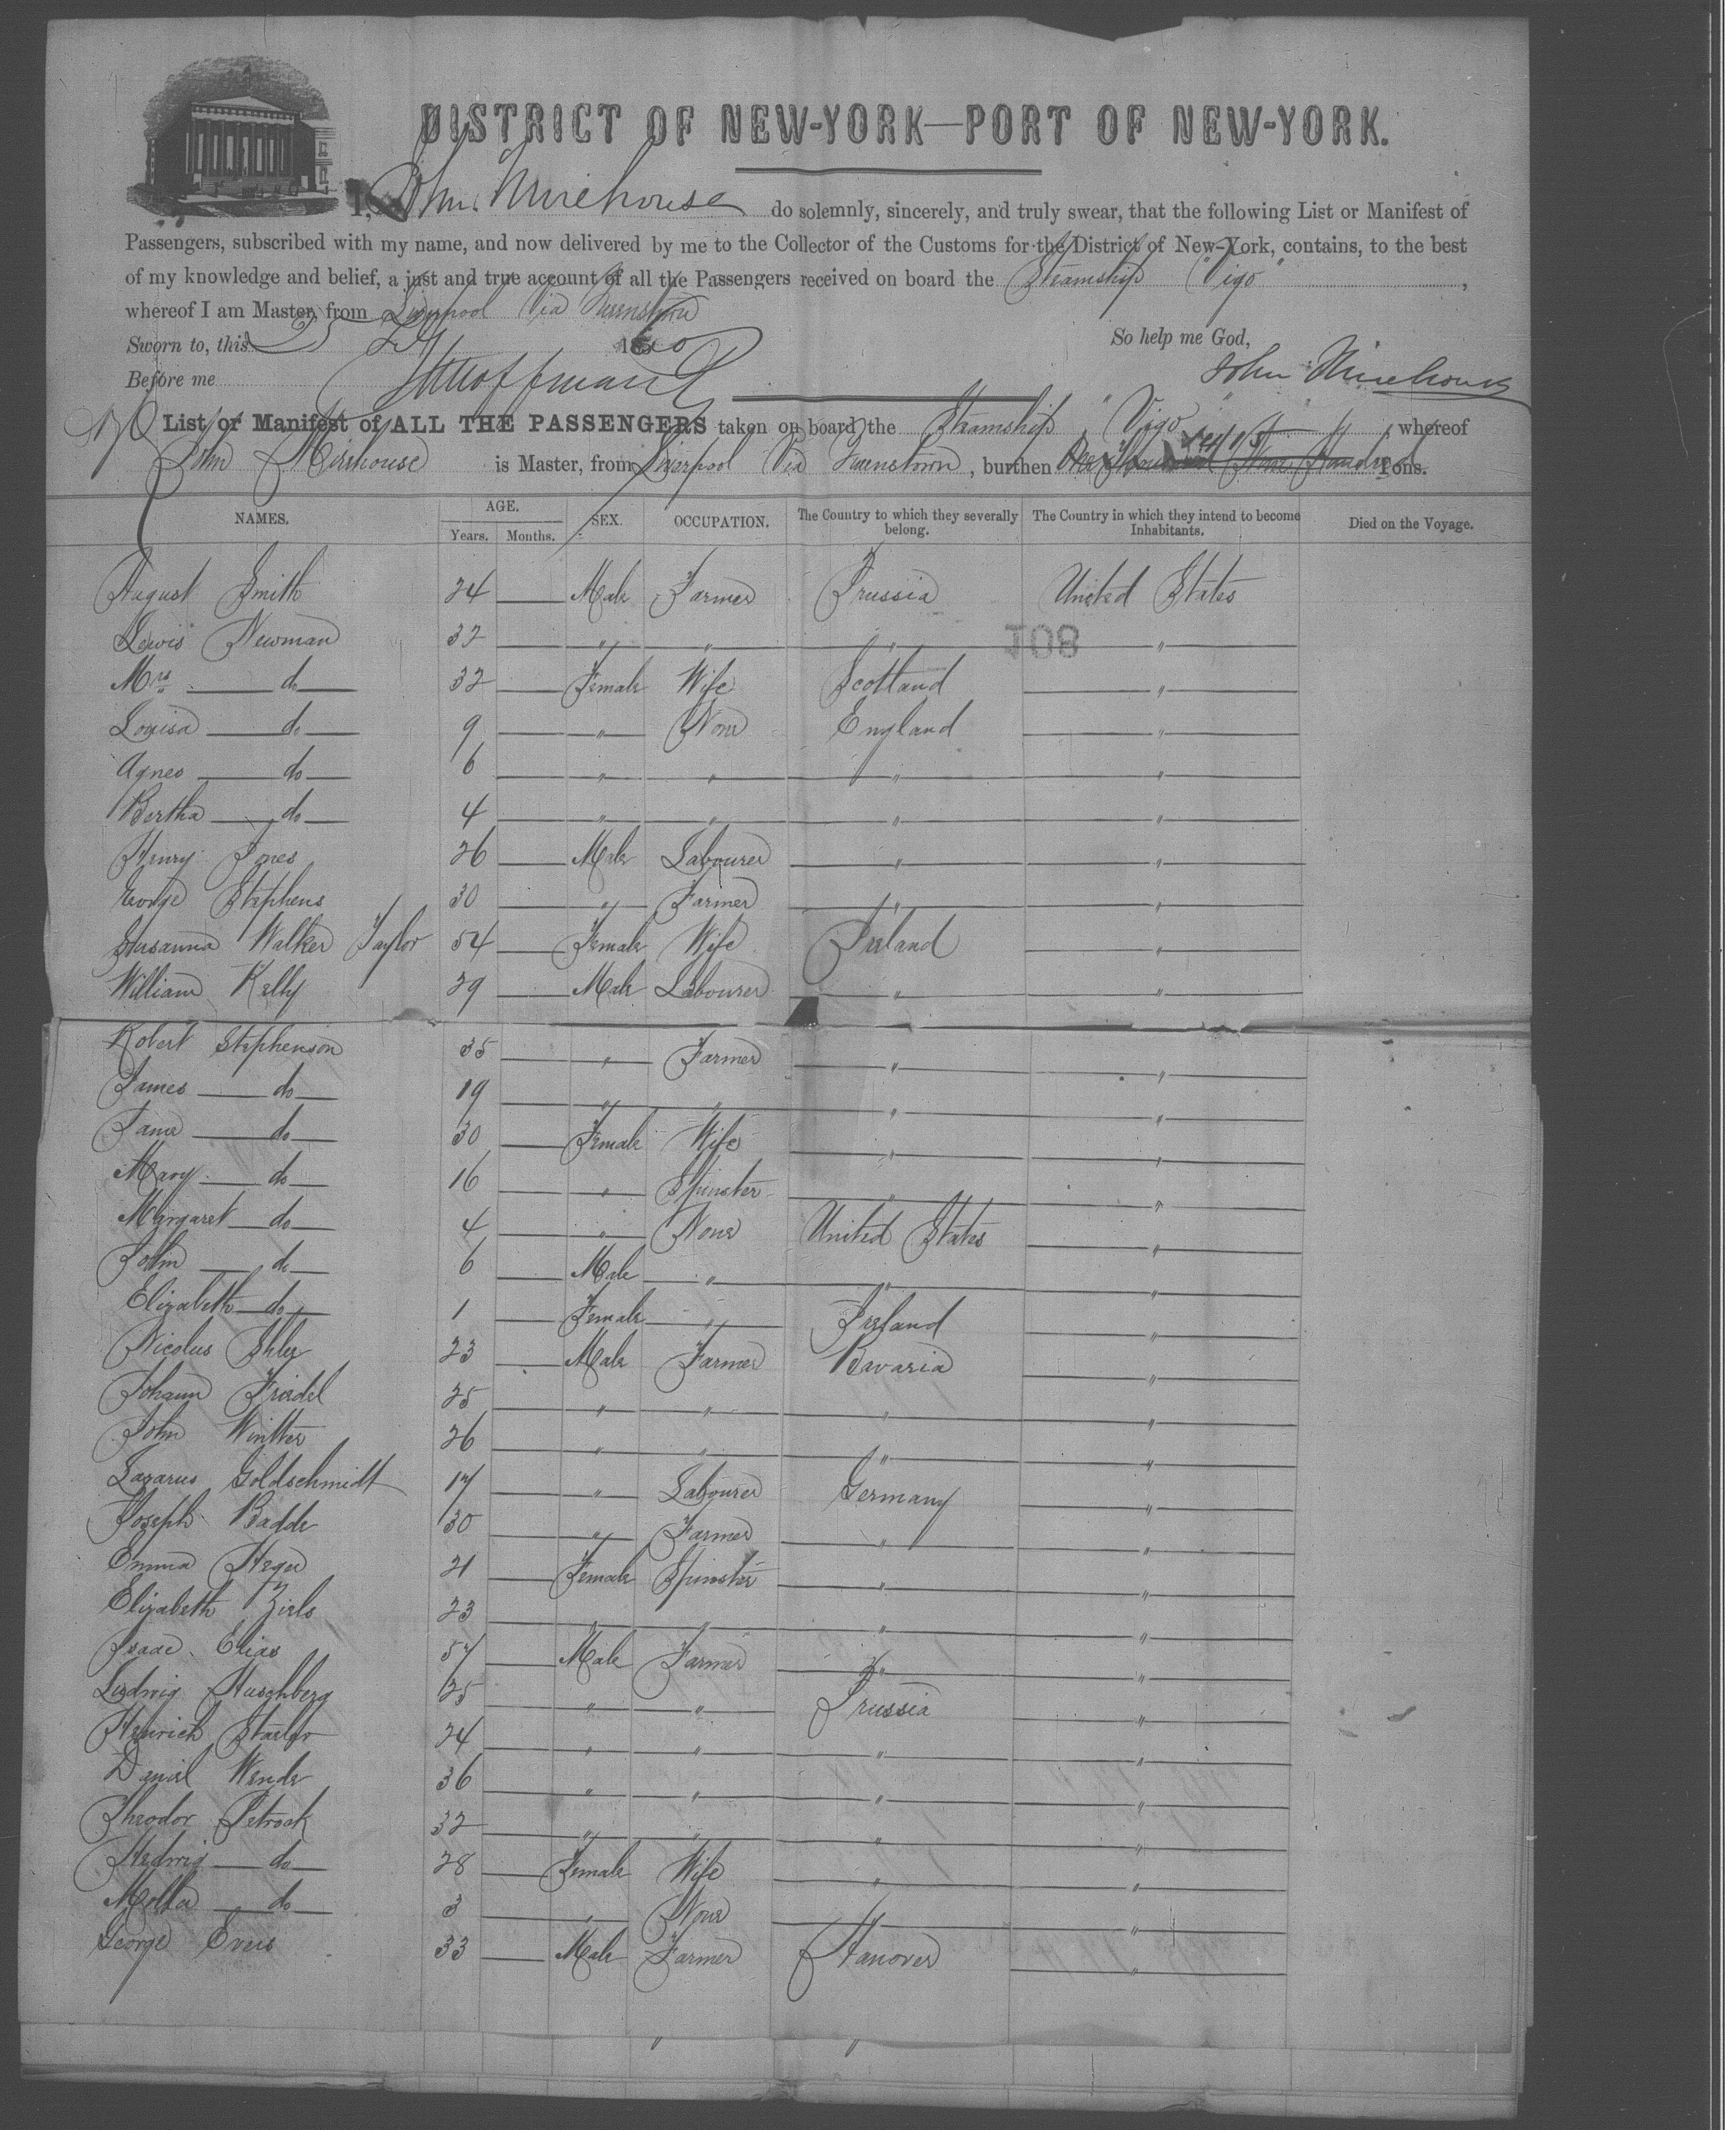 DISTRICT OF NEW-YORK—PORT OF NEW-YORK.
I, John Mirehouse do solemnly, sincerely, and truly swear, that the following List or Manifest of
Passengers, subscribed with my name, and now delivered by me to the Collector of the Customs for the District of New-York, contains, to the best
of my knowledge and belief, a just and true account of all the Passengers received on board the Steamship "Vigo",
whereof I am Master, from Liverpool Via Queenstown
Sworn to, this 25 1860 So help me God,
Before me John Mirehouse
List or Manifest of ALL THE PASSENGERS taken on board the Steamship "Vigo" whereof
John Mirehouse is Master, from Liverpool Via Queenstown, burthen Tons.
NAMES. AGE. Years. Months. SEX. OCCUPATION. The Country to which they severally belong. The Country in which they intend to become Inhabitants. Died on the Voyage.
August Smith 24 Male Farmer Prussia United States
108
Lewis Newman 32 " " " "
Mrs do 32 Female Wife Scotland "
Louisa do 9 " None England "
Agnes do 6 " " " "
Bertha do 4 " " " "
Henry Jones 26 Male Labourer " "
George Stephens 30 " Farmer " "
Susanna Walker Taylor 54 Female Wife Ireland "
William Kelly 29 Male Labourer " "
Robert Stephenson 35 " Farmer " "
James do 19 " " " "
Jane do 30 Female Wife " "
Mary do 16 " Spinster " "
Margaret do 4 " None United States "
John do 6 Male " " "
Elizabeth do 1 Female " Ireland "
Nicolus Ihler 23 Male Farmer Bavaria "
Johann Friedel 25 " " " "
John Wintter 26 " " " "
Lazarus Goldschmidt 17 " Labourer Germany "
Joseph Badde 30 " Farmer " "
Emma Heger 21 Female Spinster " "
Elizabeth Ziels 23 " " " "
Isaac Elias 57 Male Farmer " "
Ludwig Huschberg 25 " " Prussia "
Heinrich 24 " " " "
Daniel Wende 36 " " " "
Theodor Petrock 32 " " " "
Hedwig do 28 Female Wife " "
do 3 " None " "
George Evers 33 Male Farmer Hanover "
" "